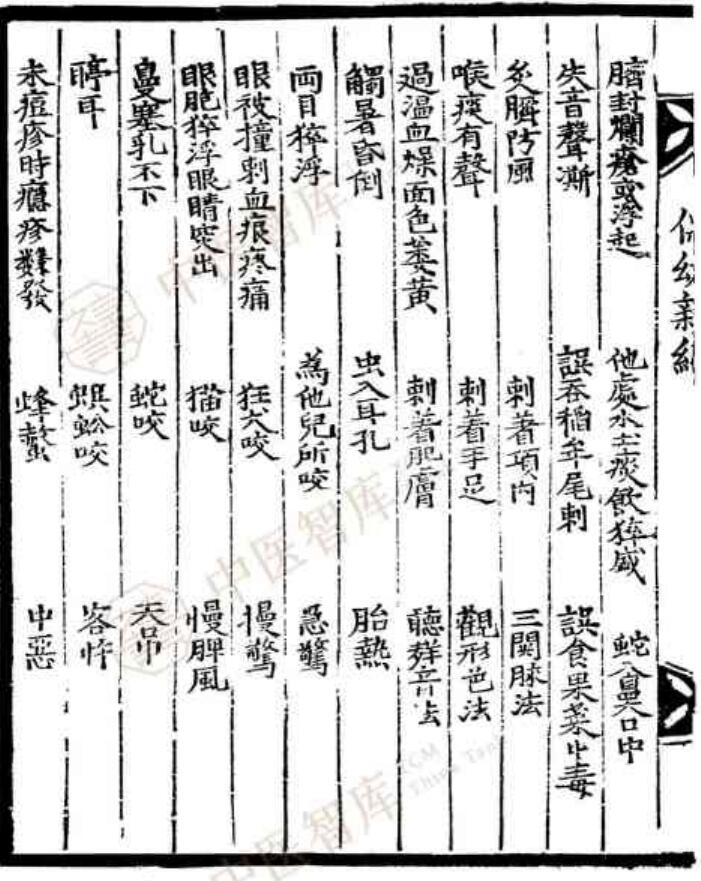 保幼新編
臍封爛瘡或浮起 他處水土痰飲猝盛 蛇入鼻口中
失音聲澌 誤吞稻牟尾刺 誤食果菜中毒
灸臍防風 刺着項內 三関脉法
喉痰有聲 刺着手足 觀形色法
過温血燥面色萎黄 刺着肥膚 聽聲音法
觸暑昏倒 虫入耳孔 胎熱
両目猝浮 為他兒所咬 急驚
眼被撞刺血痕疼痛 狂犬咬 慢驚
眼胞猝浮眼睛突出 猫咬 慢脾風
鼻塞乳不下 蛇咬 天吊
聤耳 蜈蚣咬 客忤
未痘疹時癮疹難發 蜂螫 中惡
中医智库
中医智库
中医智库